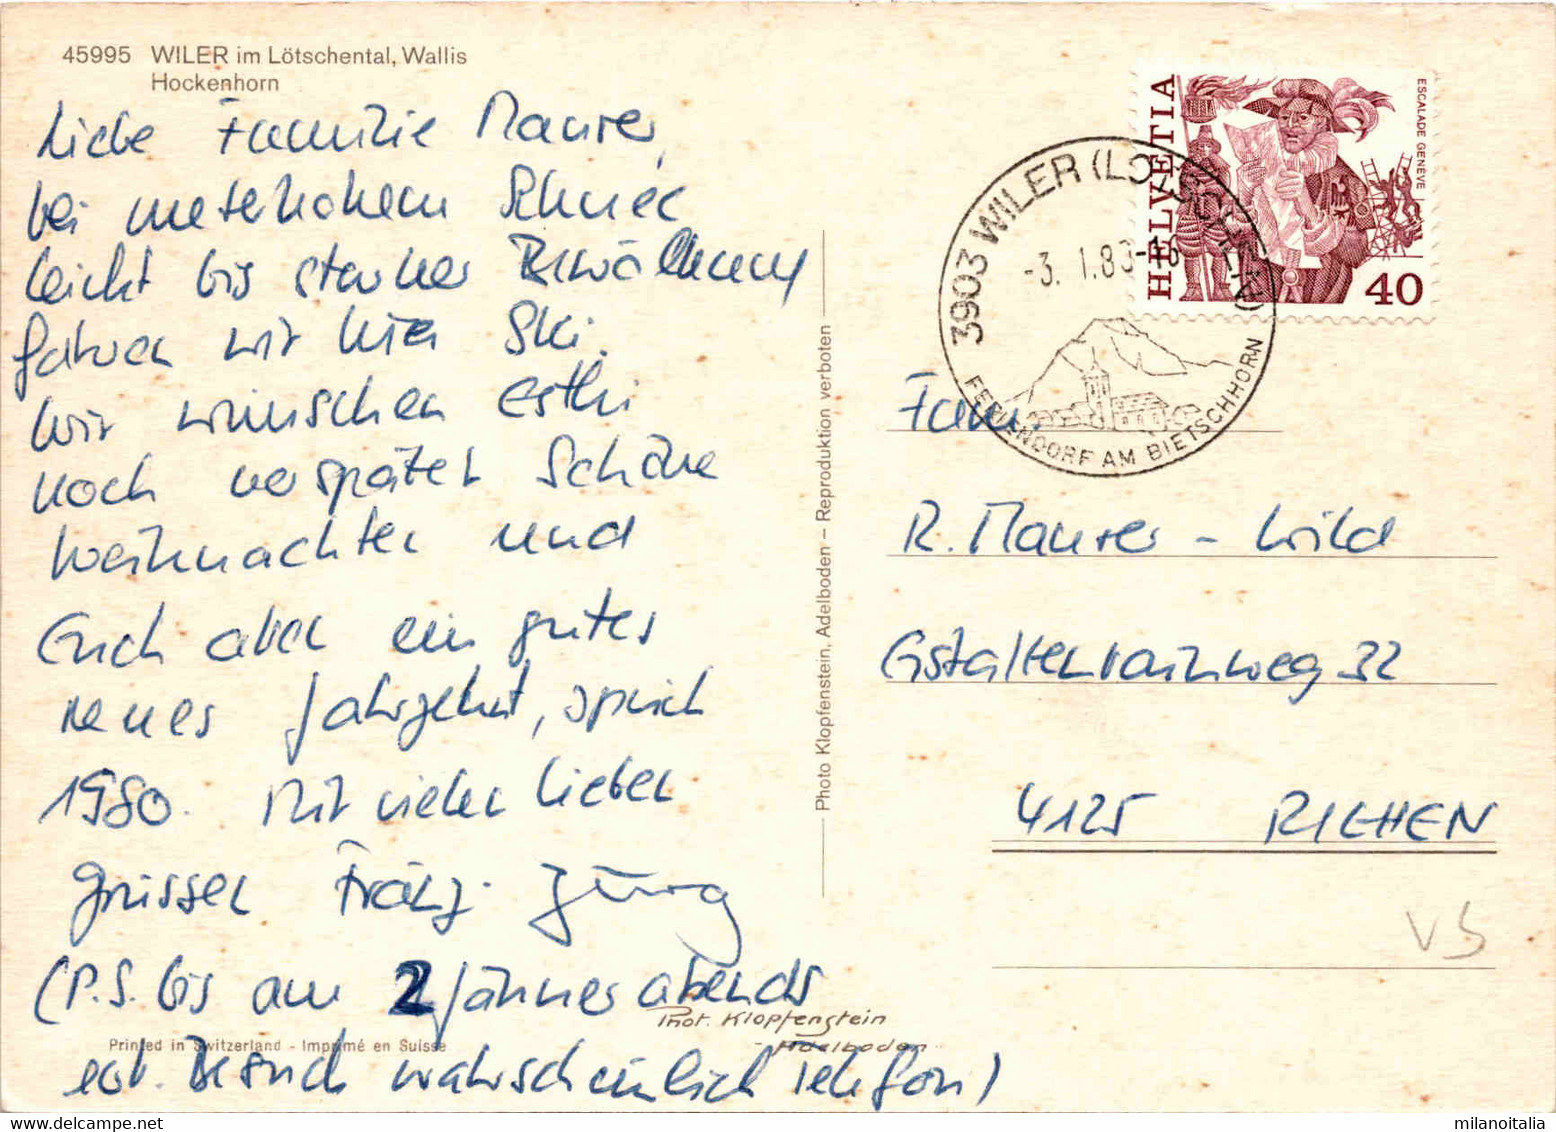 45995 WILER im Lötschental, Wallis
Hockenhorn
Liebe Familie Maurer,
bei meterhohem Schnee
leicht bis starker Bewölkung
fahren wir hier Ski.
Wir wünschen Esthi
noch verspätet Schöne
Weihnachten und
Euch aber ein gutes
neues Jahrzehnt, sprich
1980. Mit vielen lieben
Grüssen Fränzi Jürg
(P.S. bis am 2 Jänner abends
evt. Besuch wahrscheinlich Telefon)
Printed in Switzerland - Imprimé en Suisse
Phot. Klopfenstein
- Adelboden -
Photo Klopfenstein, Adelboden – Reproduktion verboten
HELVETIA
ESCALADE GENÈVE
40
3903 WILER (LÖTSCHEN)
-3. 1.83-18
FERIENDORF AM BIETSCHHORN
Fam.
R. Maurer - Wild
Gstaltenrainweg 32
4125 RIEHEN
VS
milanoitalia